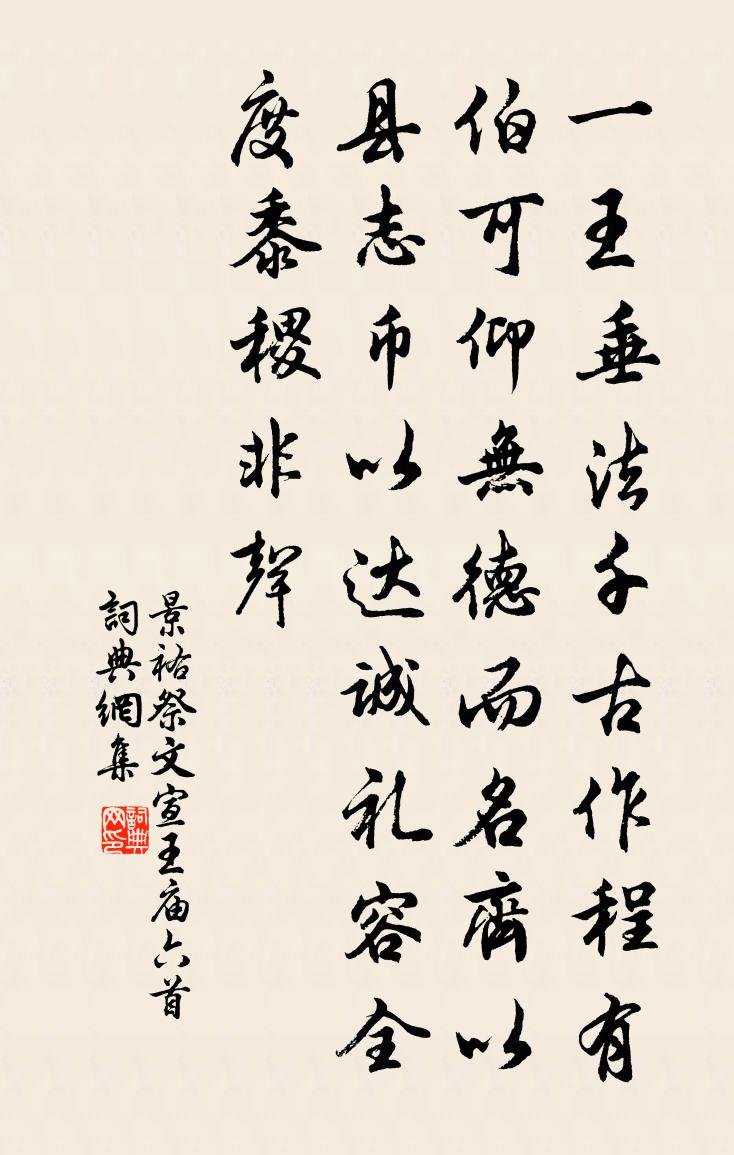 一王垂法千古作程有
伯可仰無德而名齊以
县志币以达诚礼容全
度黍稷非聲
景祐祭文宣王庙六首
詞典網集
詞典网印